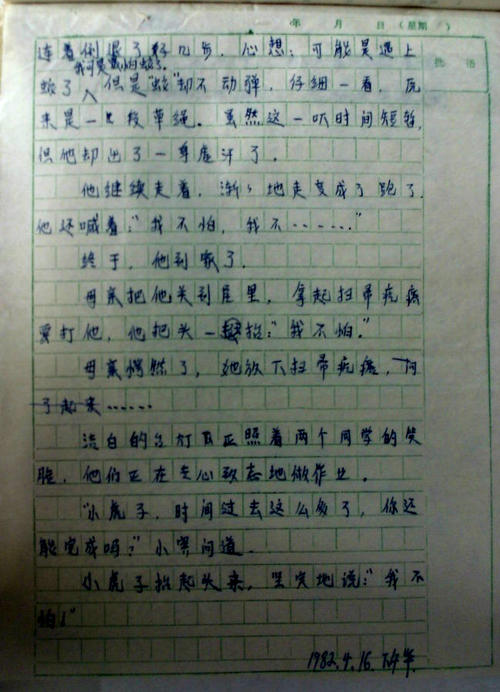 年 月 日(星期 )
批 语
连着倒退了好几步，心想：可能是遇上
我可是最怕蛇了。
蛇了，但是“蛇”却不动弹，仔细一看，原
来是一只段草绳。虽然这一吓时间短暂，
但他却出了一身虚汗了。
他继续走着，渐渐地走变成了跑了，
他还喊着：“我不怕，我不……”
终于，他到家了。
母亲把他关到屋里，拿起扫帚疙瘩
要打他，他把头一抬：“我不怕。”
母亲愕然了，她放下扫帚疙瘩，
了起来……
洁白的台灯 正照着两个同学的笑
脸，他们正在专心致志地做作业。
“小虎子，时间过去这么多了，你还
能完成吗？”小 问道。
小虎子抬起头来，坚定地说：“我不
怕！”
1982.4.16.下午